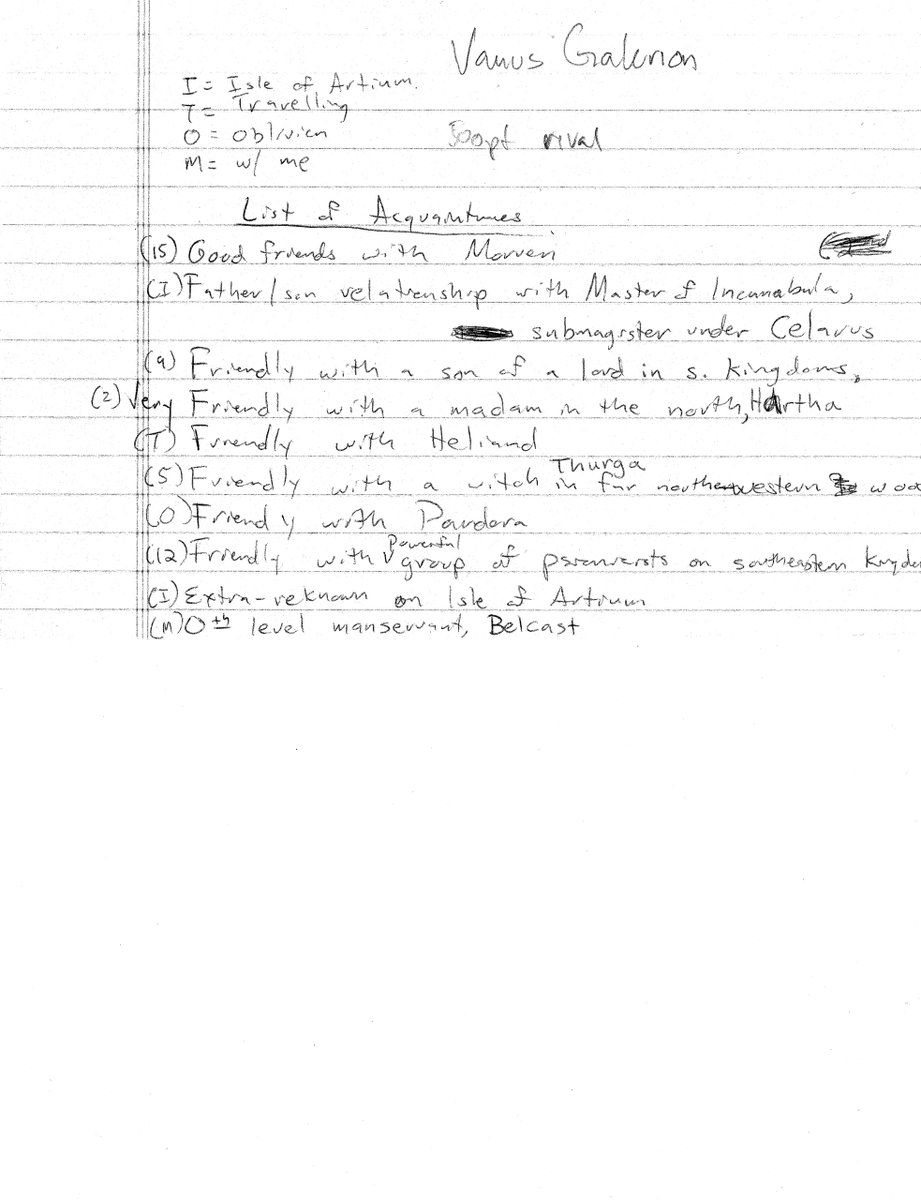 Vanus Galerion
I = Isle of Artium.
T = Travelling
O = Oblivion
M = w/ me
500pt rival
List of Acquaintances
(15) Good friends with Morven
(I) Father/son relationship with Master of Incunabula,
submagister under Celarus
(9) Friendly with a son of a lord in s. kingdoms,
(2) Very Friendly with a madam in the north, Hartha
(T) Friendly with Heliand
(5) Friendly with a witch Thurga in far northwestern woo
(O) Friendly with Pandora
(12) Friendly with Powerful group of on southeastern kingdo
(I) Extra-reknown on Isle of Artium
(M) 0th level manservant, Belcast